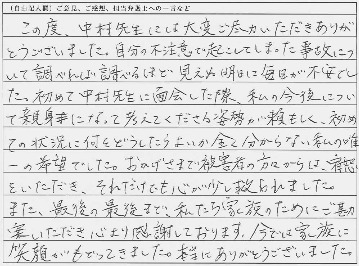 (自由記入欄)ご意見、ご感想、担当弁護士への一言など
この度、中村先生には大変ご尽力いただきありが
とうございました。自分の不注意で起こしてしまった事故につ
いて調べれば調べるほど見えぬ明日に毎日が不安でし
た。初めて中村先生に面会した際、私の今後につい
て親身になって考えてくださる姿勢が頼もしく、初め
ての状況に何をどうしたらよいか全て分からない私の唯
一の希望でした。おかげさまで被害者の方々からは、宥恕
をいただき、それだけでも心が少し救われました。
また、最後の最後まで、私たち家族のためにご勘
案いただき心より感謝しております。今では家族に
笑顔がもどってきました。本当にありがとうございました。